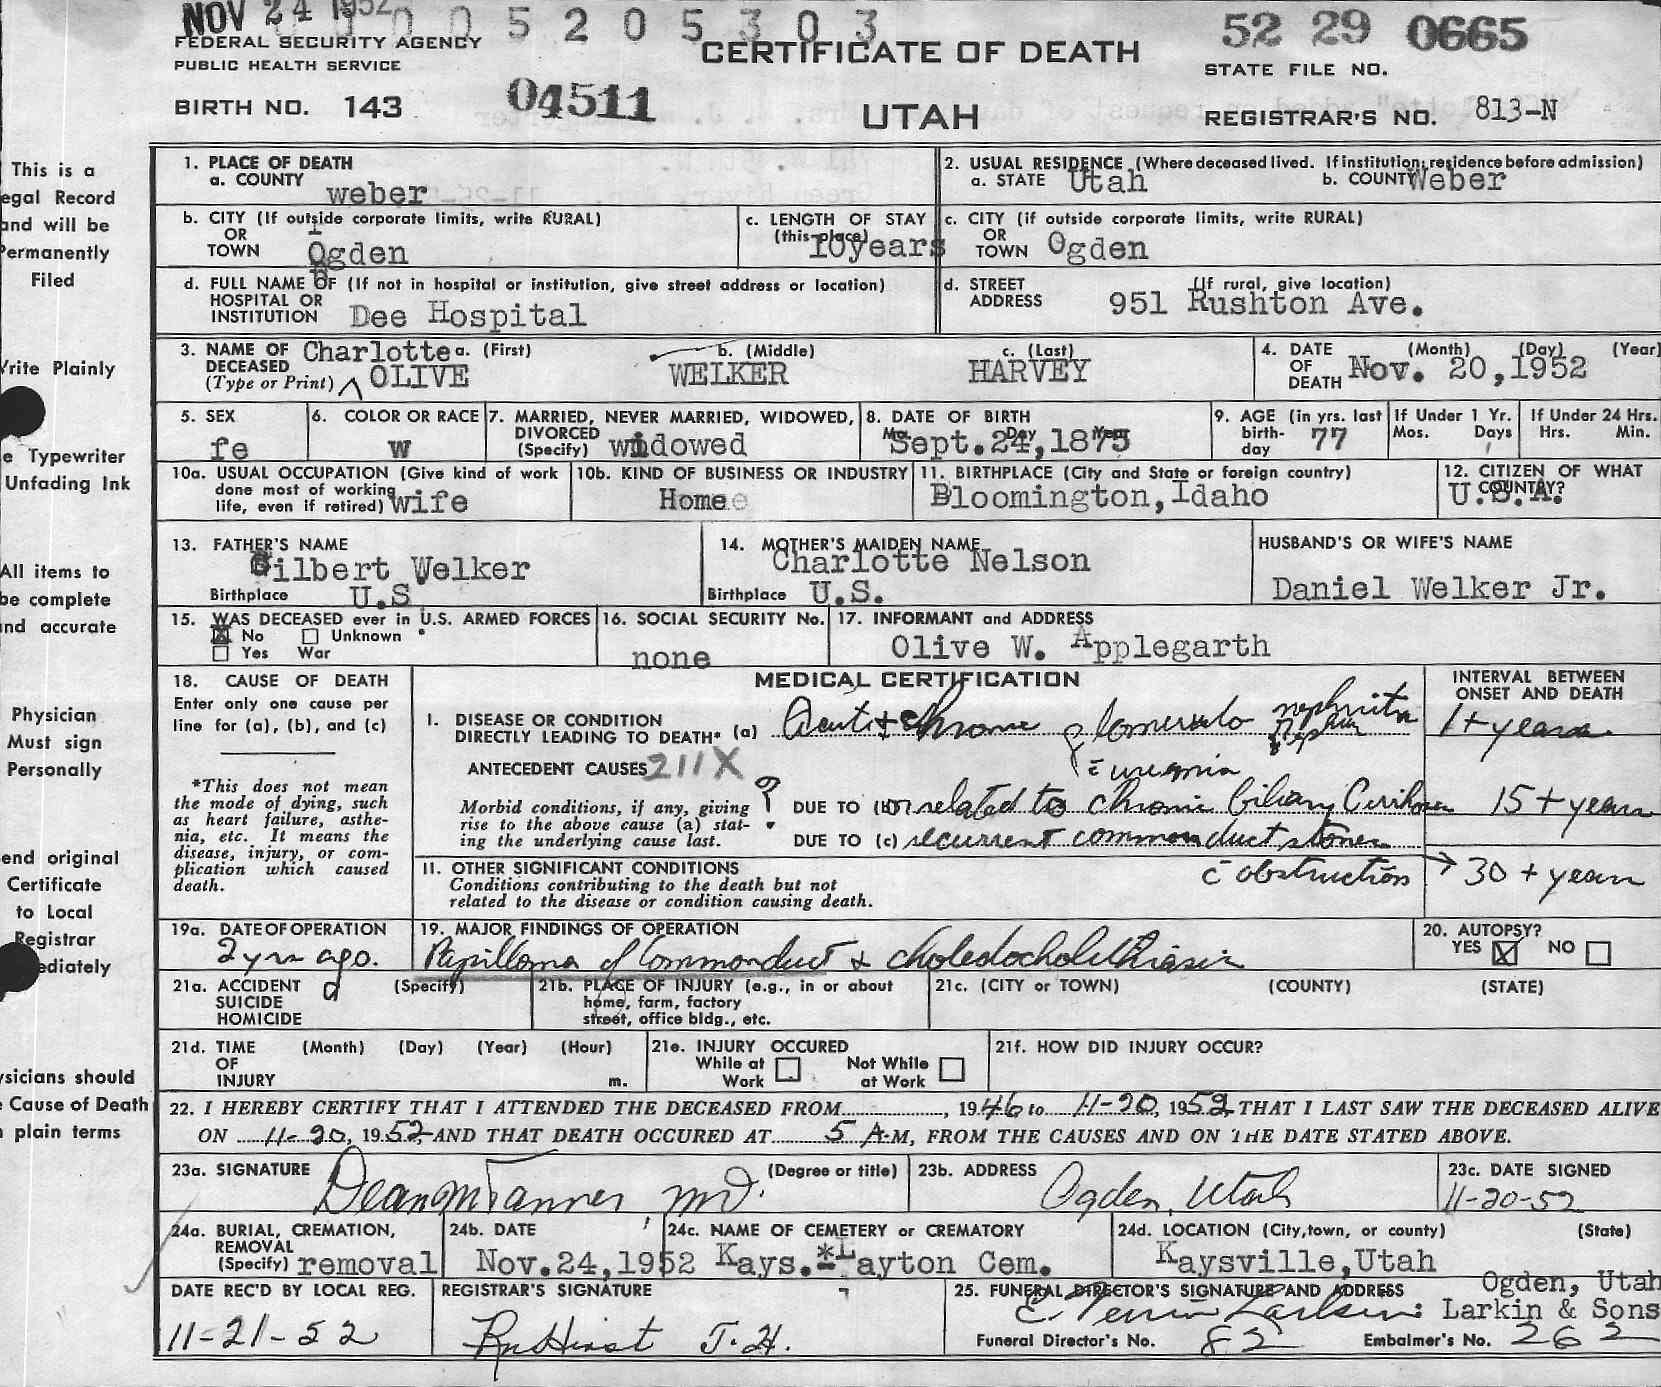 NOV 24 1952
0 0 5 2 0 5 3 0 3
52 29 0665
FEDERAL SECURITY AGENCY
PUBLIC HEALTH SERVICE
CERTIFICATE OF DEATH
STATE FILE NO.
BIRTH NO. 143
04511
UTAH
REGISTRAR'S NO. 813-N
This is a
egal Record
and will be
Permanently
Filed
Write Plainly
e Typewriter
Unfading Ink
All items to
be complete
and accurate
Physician
Must sign
Personally
end original
Certificate
to Local
Registrar
ediately
ysicians should
Cause of Death
plain terms
1. PLACE OF DEATH
a. COUNTY weber
2. USUAL RESIDENCE (Where deceased lived. If institution; residence before admission)
a. STATE Utah b. COUNTY Weber
b. CITY (If outside corporate limits, write RURAL)
OR
TOWN Ogden
c. LENGTH OF STAY
(this place) 10years
c. CITY (if outside corporate limits, write RURAL)
OR
TOWN Ogden
d. FULL NAME OF (If not in hospital or institution, give street address or location)
HOSPITAL OR
INSTITUTION Dee Hospital
d. STREET (If rural, give location)
ADDRESS 951 Rushton Ave.
3. NAME OF DECEASED (Type or Print)
Charlotte a. (First) b. (Middle) c. (Last)
OLIVE WELKER HARVEY
4. DATE OF DEATH (Month) (Day) (Year)
Nov. 20,1952
5. SEX
fe
6. COLOR OR RACE
W
7. MARRIED, NEVER MARRIED, WIDOWED,
DIVORCED
(Specify) widowed
8. DATE OF BIRTH
Mo. Day Year
Sept.24,1875
9. AGE (in yrs. last birth-day 77
If Under 1 Yr.
Mos. Days
If Under 24 Hrs.
Hrs. Min.
10a. USUAL OCCUPATION (Give kind of work
done most of working
life, even if retired) wife
10b. KIND OF BUSINESS OR INDUSTRY
Home
11. BIRTHPLACE (City and State or foreign country)
Bloomington,Idaho
12. CITIZEN OF WHAT
COUNTRY?
U.S.A.
13. FATHER'S NAME
Gilbert Welker
Birthplace U.S
14. MOTHER'S MAIDEN NAME
Charlotte Nelson
Birthplace U.S.
HUSBAND'S OR WIFE'S NAME
Daniel Welker Jr.
15. WAS DECEASED ever in U.S. ARMED FORCES
No Unknown
Yes War
16. SOCIAL SECURITY No.
none
17. INFORMANT and ADDRESS
Olive W. Applegarth
18. CAUSE OF DEATH
Enter only one cause per
line for (a), (b), and (c)
*This does not mean
the mode of dying, such
as heart failure, asthe-
nia, etc. It means the
disease, injury, or com-
plication which caused
death.
MEDICAL CERTIFICATION
INTERVAL BETWEEN
ONSET AND DEATH
I. DISEASE OR CONDITION
DIRECTLY LEADING TO DEATH* (a) Acute + chronic glomerulo nephritis
1+ years
ANTECEDENT CAUSES 211X
c̄ uremia
Morbid conditions, if any, giving
rise to the above cause (a) stat-
ing the underlying cause last.
? DUE TO (b) related to chronic biliary Cirrhosis
15+ years
DUE TO (c) recurrent common duct stones
c̄ obstruction
→ 30 + years
II. OTHER SIGNIFICANT CONDITIONS
Conditions contributing to the death but not
related to the disease or condition causing death.
19a. DATE OF OPERATION
2 yrs ago.
19. MAJOR FINDINGS OF OPERATION
Papilloma of Common duct & choledocholithiasis
20. AUTOPSY?
YES NO
21a. ACCIDENT (Specify)
SUICIDE
HOMICIDE
21b. PLACE OF INJURY (e.g., in or about
home, farm, factory
street, office bldg., etc.
21c. (CITY or TOWN) (COUNTY) (STATE)
21d. TIME (Month) (Day) (Year) (Hour)
OF
INJURY m.
21e. INJURY OCCURED
While at Work
Not While at Work
21f. HOW DID INJURY OCCUR?
22. I HEREBY CERTIFY THAT I ATTENDED THE DECEASED FROM............, 1946 to 11-20, 1952 THAT I LAST SAW THE DECEASED ALIVE
ON 11-20, 1952 AND THAT DEATH OCCURED AT 5 A.M, FROM THE CAUSES AND ON THE DATE STATED ABOVE.
23a. SIGNATURE (Degree or title)
Dean M Tanner, MD.
23b. ADDRESS
Ogden, Utah
23c. DATE SIGNED
11-20-52
24a. BURIAL, CREMATION,
REMOVAL
(Specify) removal
24b. DATE
Nov.24,1952
24c. NAME OF CEMETERY or CREMATORY
Kays.*Layton Cem.
24d. LOCATION (City,town, or county) (State)
Kaysville,Utah
DATE REC'D BY LOCAL REG.
11-21-52
REGISTRAR'S SIGNATURE
J.H.
25. FUNERAL DIRECTOR'S SIGNATURE AND ADDRESS
Ogden, Utah
Larkin: Larkin & Sons
Funeral Director's No. 82 Embalmer's No. 262